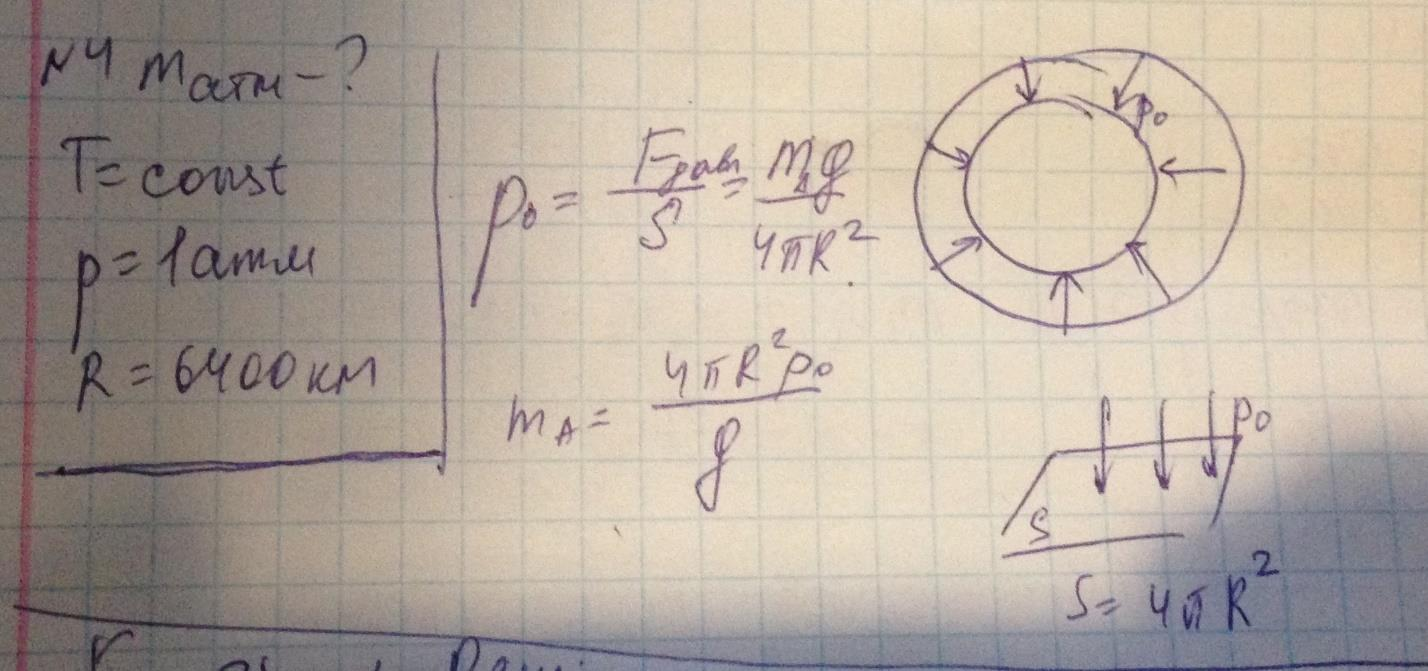 №4 mатм - ?
T = const
p = 1 атм
R = 6400 км
p₀ = Fдавл/S = m_A g/4πR²
m_A = 4πR²p₀/g
p₀
p₀
S
S = 4πR²